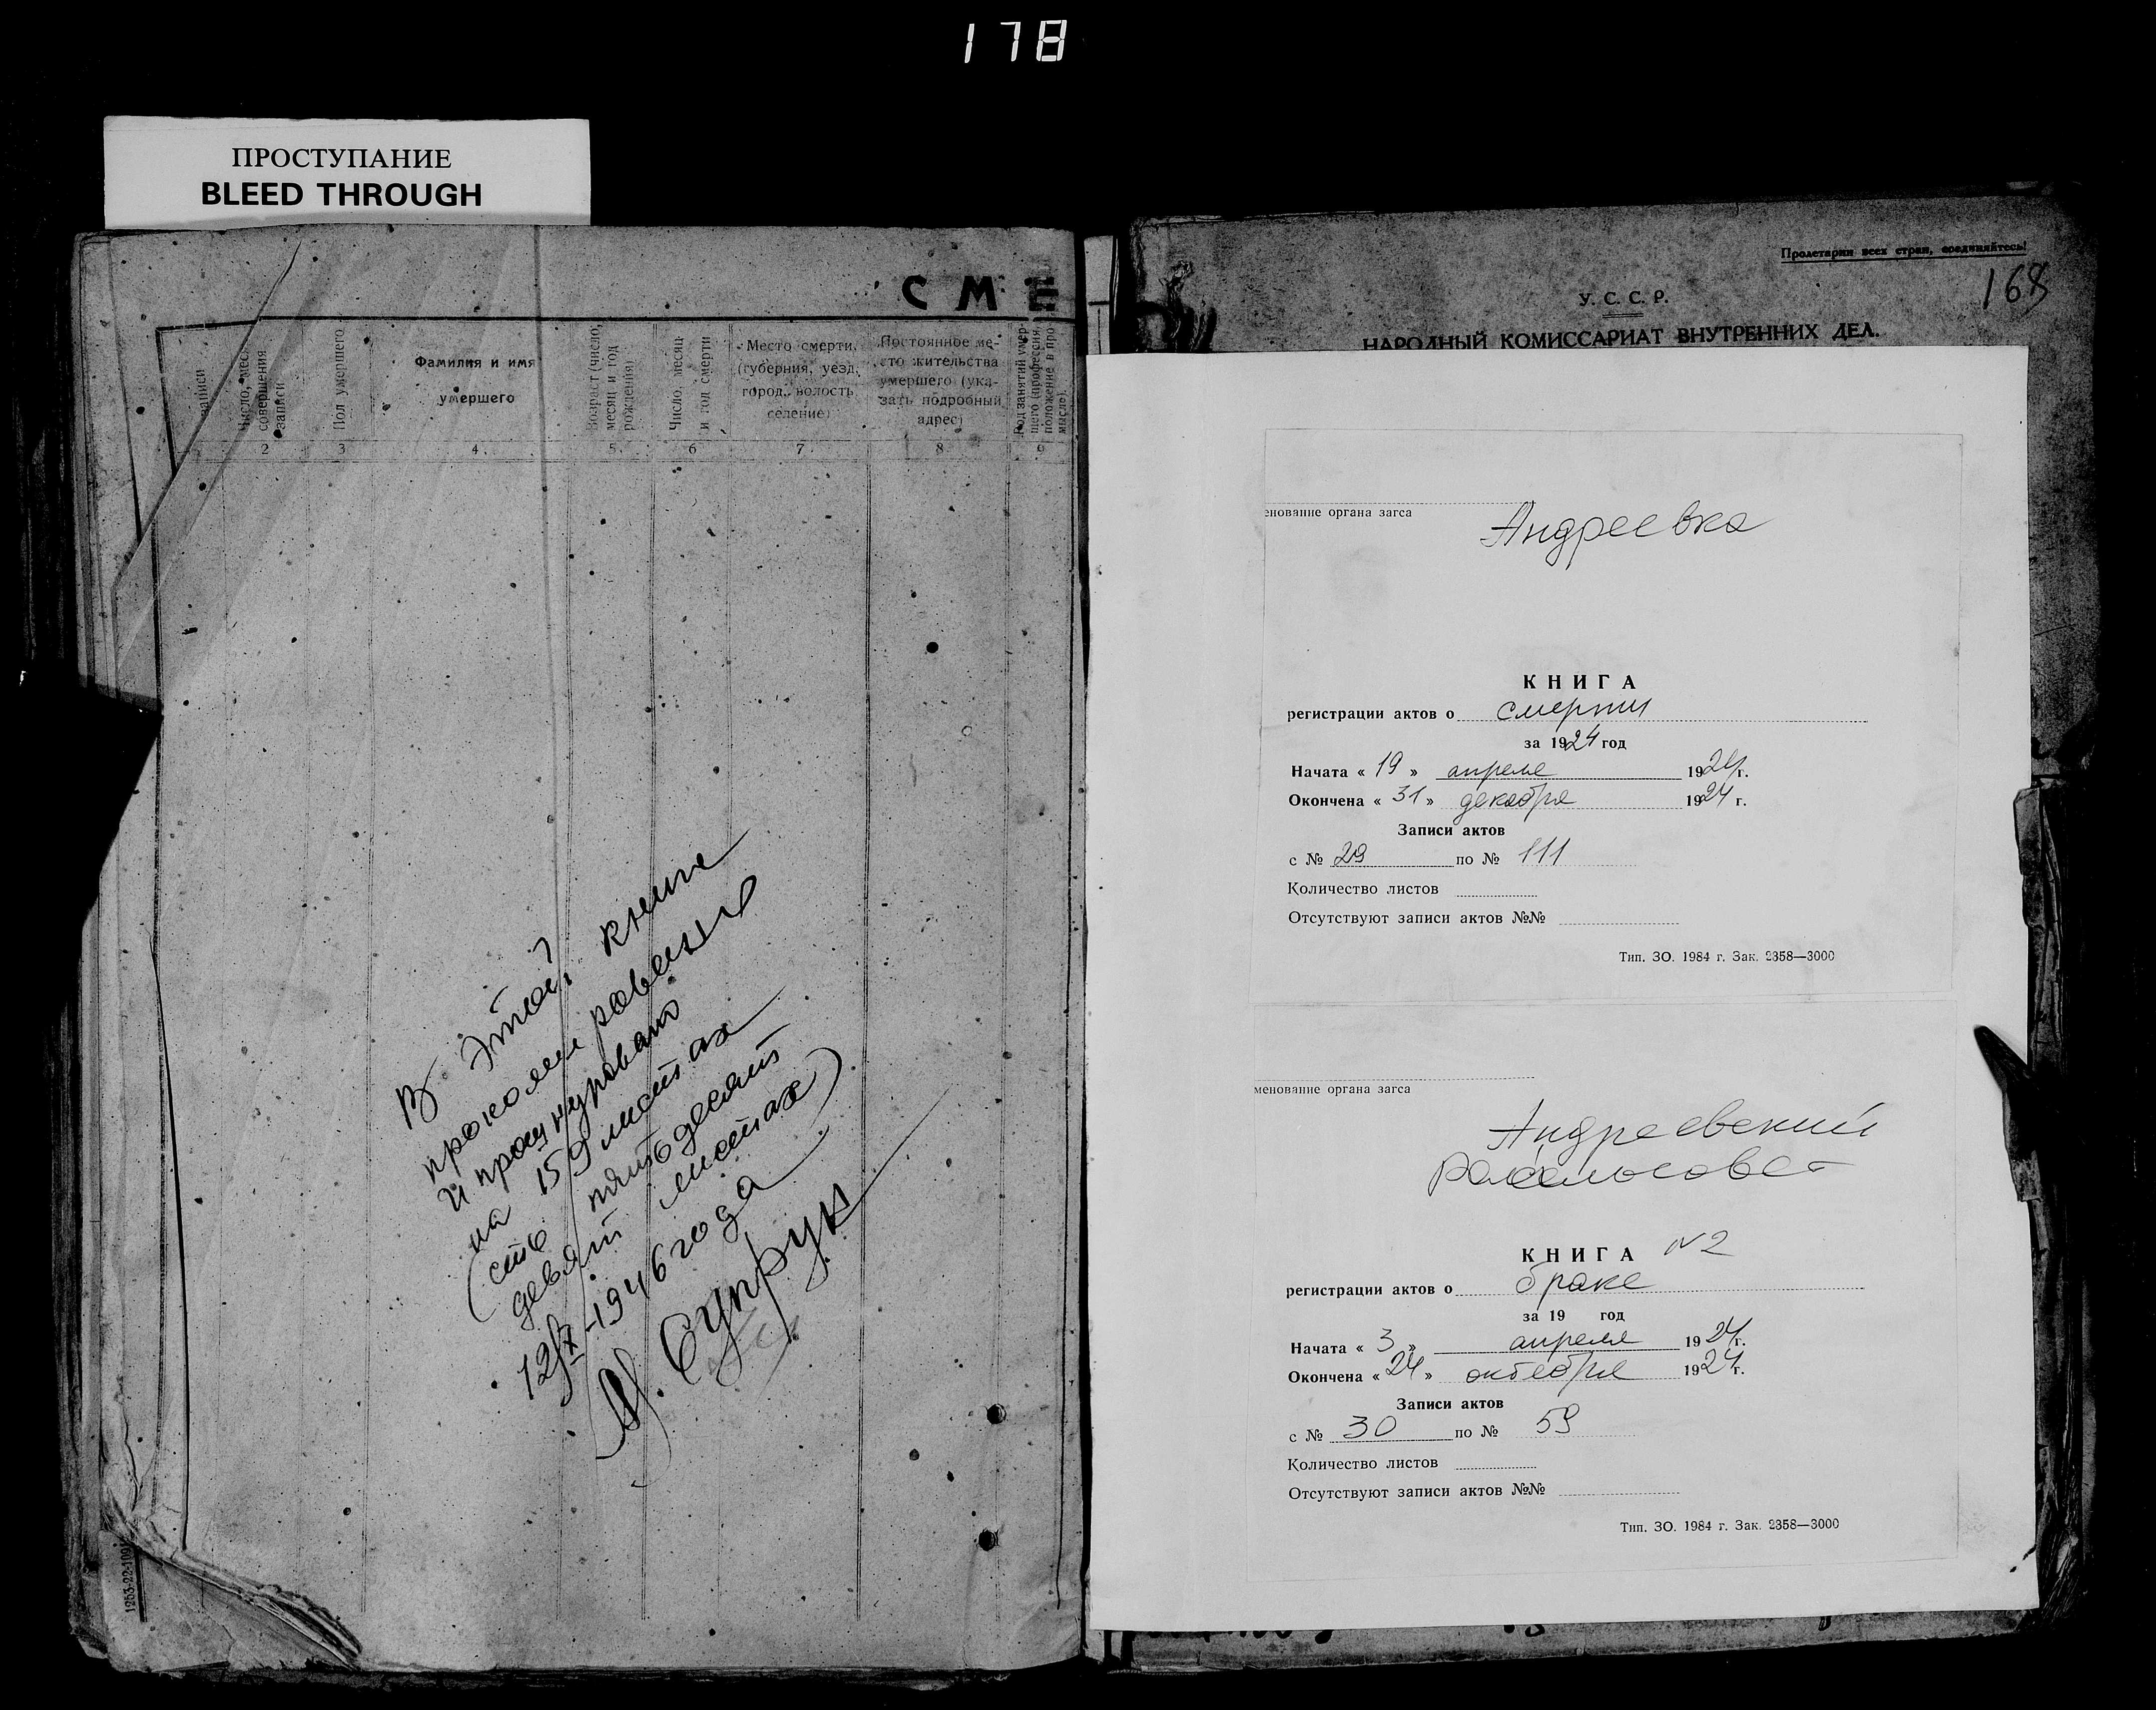 178
ПРОСТУПАНИЕ
BLEED THROUGH
СМЕ
записи
Число, мес.
совершения
записи
Пол умершего
Фамилия и имя
умершего
Возраст (число,
месяц и год
рождения)
Число, месяц
и год смерти
Место смерти,
(губерния, уезд,
город, волость
селение)
Постоянное ме-
сто жительства
умершего (ука-
зать подробный
адрес)
Род занятий умер-
шего (профессия,
положение в про
мысле)
2 3 4 5 6 7 8 9
В этой книге
и прошнуровано
на 159 листах
(сто пятьдесят
девят листах)
12/X-1946 года
Супрун
1253-22-109
Пролетарии всех стран, соединяйтесь!
168
У. С. С. Р.
НАРОДНЫЙ КОМИССАРИАТ ВНУТРЕННИХ ДЕЛ.
енование органа загса
Андреевка
КНИГА
регистрации актов о смерти
за 1924 год
Начата « 19 » апреля 1924 г.
Окончена « 31 » декабря 1924 г.
Записи актов
с № 29 по № 111
Количество листов
Отсутствуют записи актов №№
Тип. ЗО. 1984 г. Зак. 2358—3000
менование органа загса
Андреевский
КНИГА N2
регистрации актов о браке
за 19 год
Начата « 3 » апреля 1924 г.
Окончена « 24 » октября 1924 г.
Записи актов
с № 30 по № 59
Количество листов
Отсутствуют записи актов №№
Тип. ЗО. 1984 г. Зак. 2358—3000